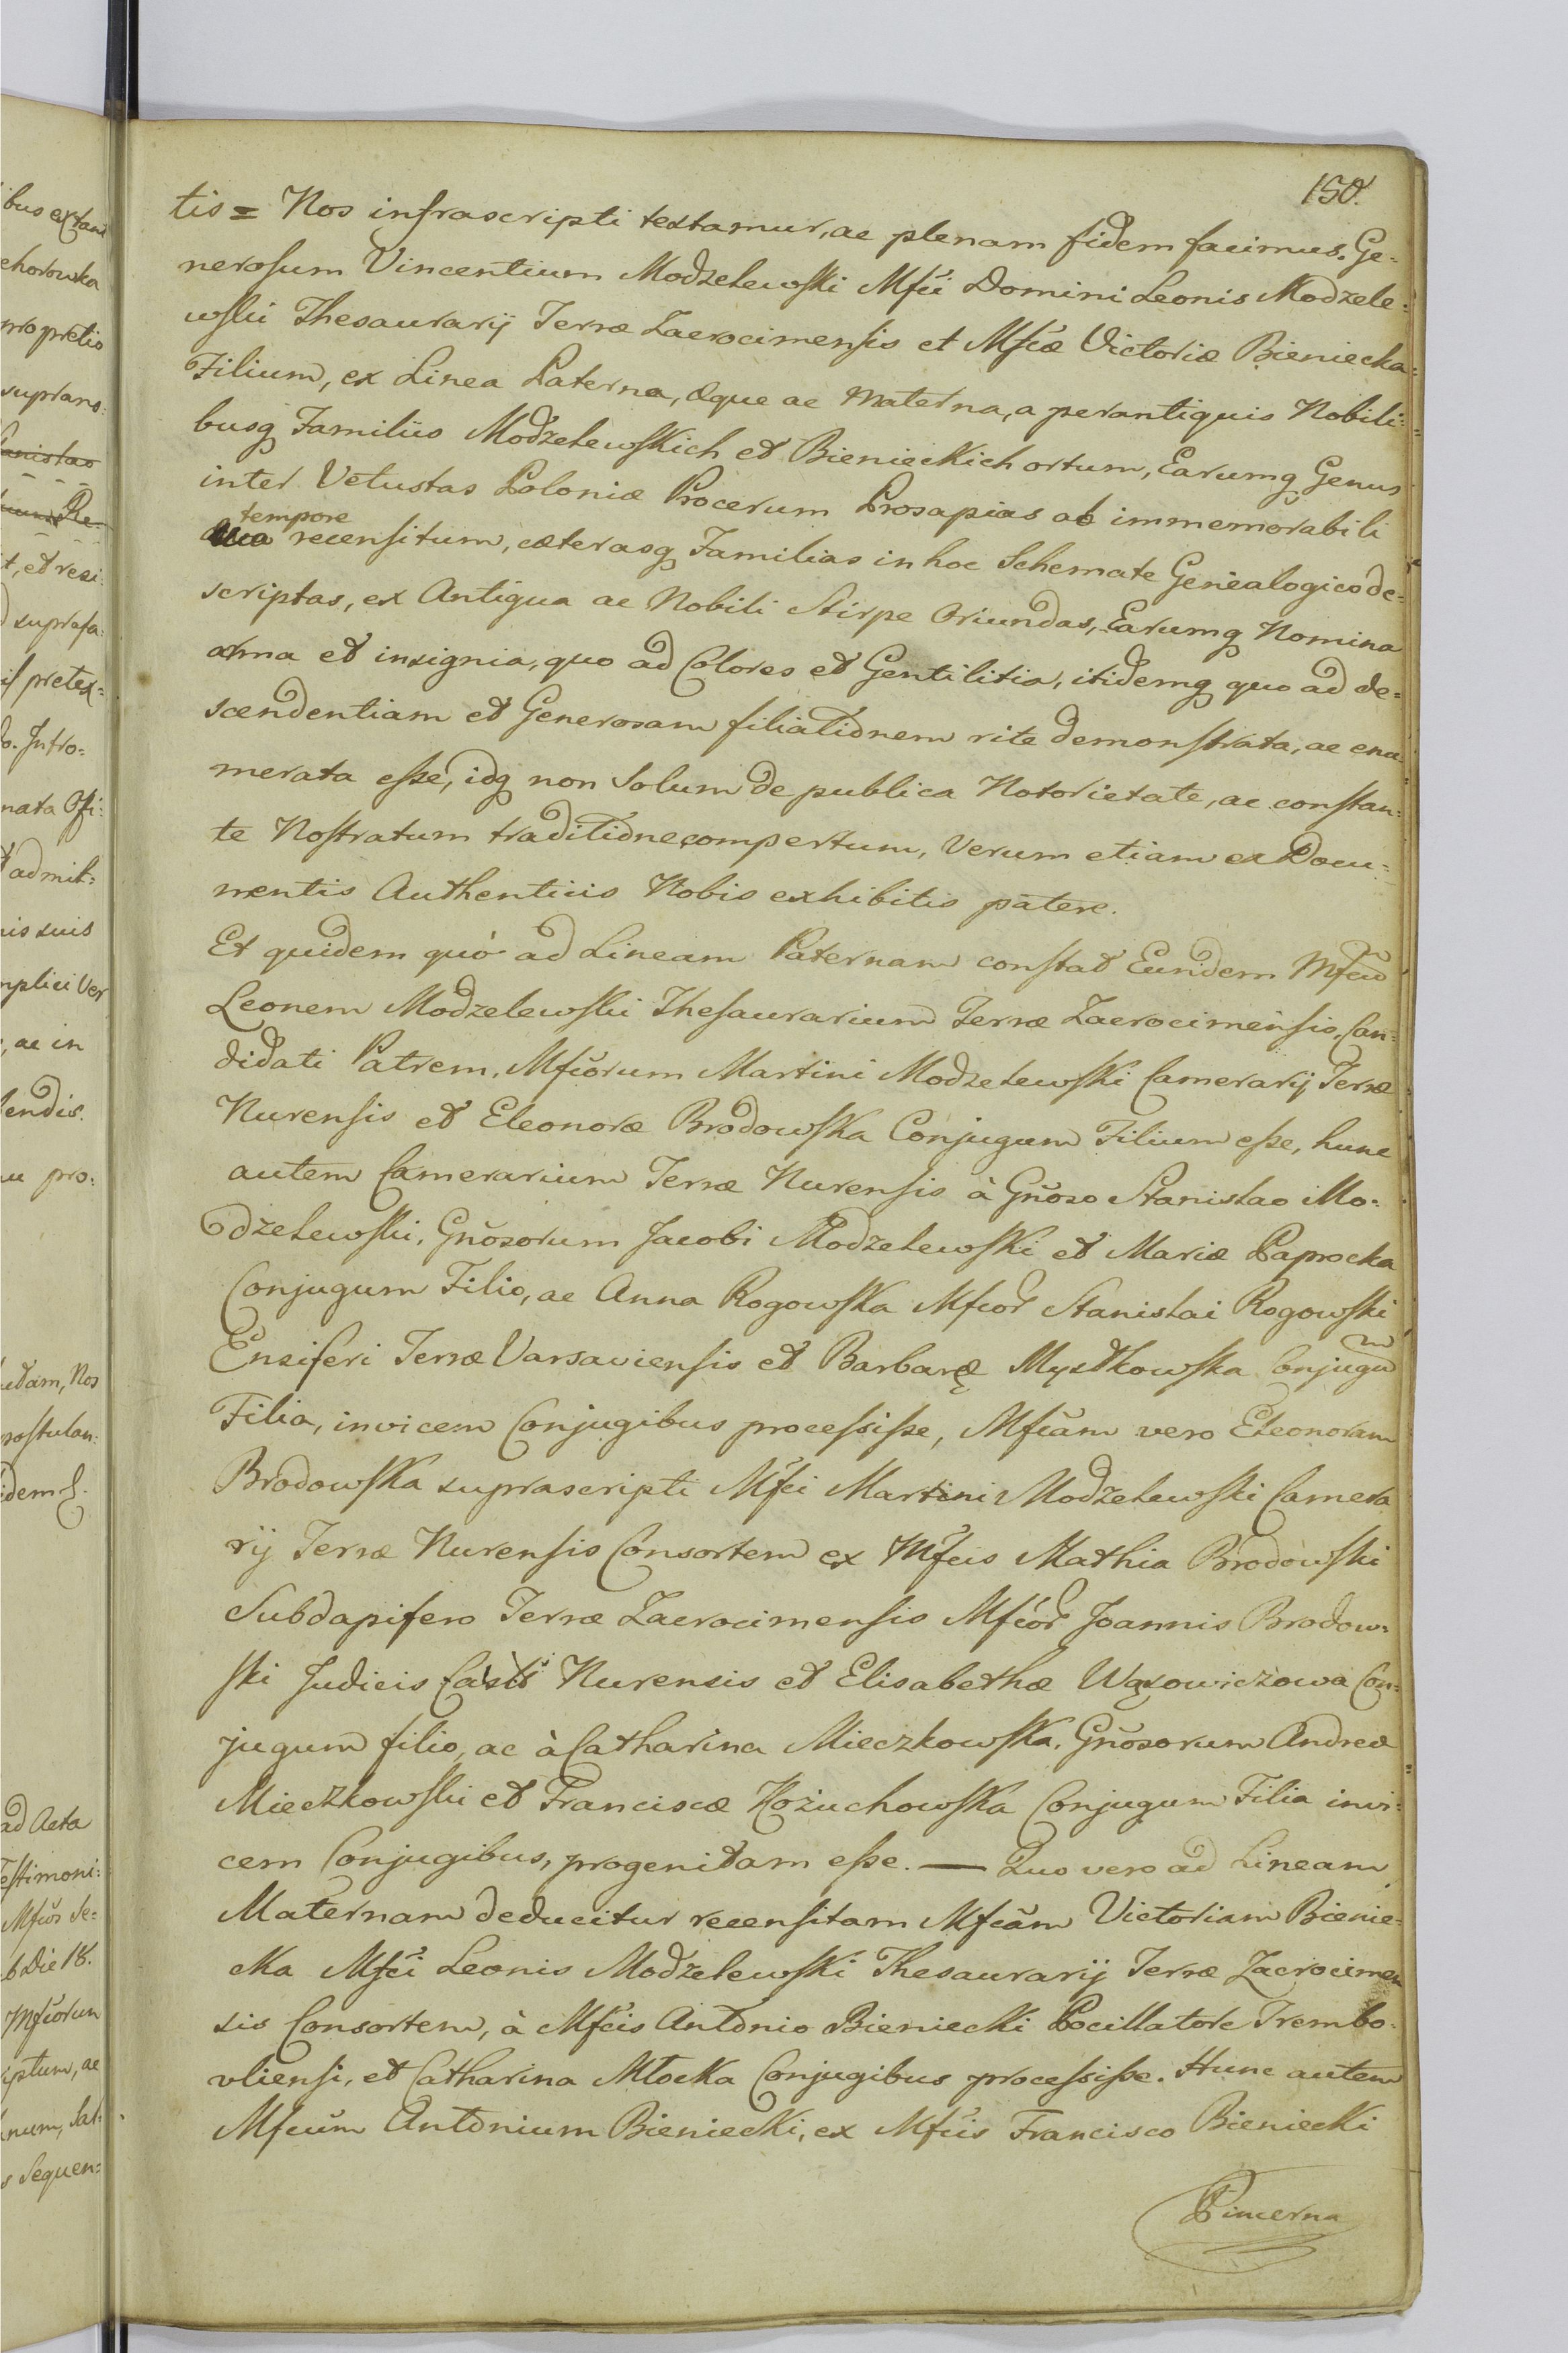 150.
tis = Nos infrascripti testamur, ac plenam fidem facimus. Ge-
nerosum Vincentium Modzelewski Mfci Domini Leonis Modzele-
wski Thesaurarij Terræ Zacrocimensis et Mfcæ Victoriæ Bieniecka
Filium, ex Linea Paterna, æque ac Materna, a perantiquis Nobili-
busq Familiis Modzelewskich et Bienieckich ortum, Earumq Genus
inter Vetustas Poloniæ Procerum Prosapias ab immemorabili
tempore
recensitum, cæterasq Familias in hoc Schemate Genealogico de-
scriptas, ex Antiqua ac Nobili Stirpe Oriundas, Earumq Nomina
arma et insignia, quo ad Colores et Gentilitia, itidemq quo ad de-
scendentiam et Generosam filiationem rite demonstrata, ac enu-
merata esse, idq non Solum de publica Notorietate, ac constan-
te Nostratum traditione compertum, Verum etiam ex Docu-
mentis Authenticis Nobis exhibitis patere.
Et quidem quò ad Lineam Paternam constat Eundem Mfcum
Leonem Modzelewski Thesaurarium Terræ Zacrocimensis, Can-
didati Patrem, Mfcorum Martini Modzelewski Camerarij Terræ
Nurensis et Eleonoræ Brodowska Conjugum Filium esse, hunc
autem Camerarium Terræ Nurensis à Gñoso Stanislao Mo-
dzelewski, Gñosorum Jacobi Modzelewski et Mariæ Paprocka
Conjugum Filio, ac Anna Rogowska Mfcor Stanislai Rogowski
Ensiferi Terræ Varsaviensis et Barbaræ Mystkowska Conjugum
Filia, invicem Conjugibus processisse, Mfcam vero Eleonoram
Brodowska suprascripti Mfci Martini Modzelewski Camera
rij Terræ Nurensis Consortem ex Mfcis Mathia Brodowski
Subdapifero Terræ Zacrocimensis Mfcor Joannis Brodow-
ski Judicis Castr Nurensis et Elisabethæ Wąsowiczowa Con-
jugum filio, ac à Catharina Mieczkowska, Gñosorum Andreæ
Mieczkowski et Franciscæ Kożuchowska Conjugum Filia invi-
cem Conjugibus, progenitam esse. — Quo vero ad Lineam
Maternam deducitur recensitam Mfcam Victoriam Bienie-
cka Mfci Leonis Modzelewski Thesaurarij Terræ Zacrocimen
sis Consortem, à Mfcis Antonio Bieniecki Pocillatore Trembo-
vliensi, et Catharina Młocka Conjugibus processisse. Hunc autem
Mfcum Antonium Bieniecki, ex Mfcis Francisco Bieniecki
Pincerna